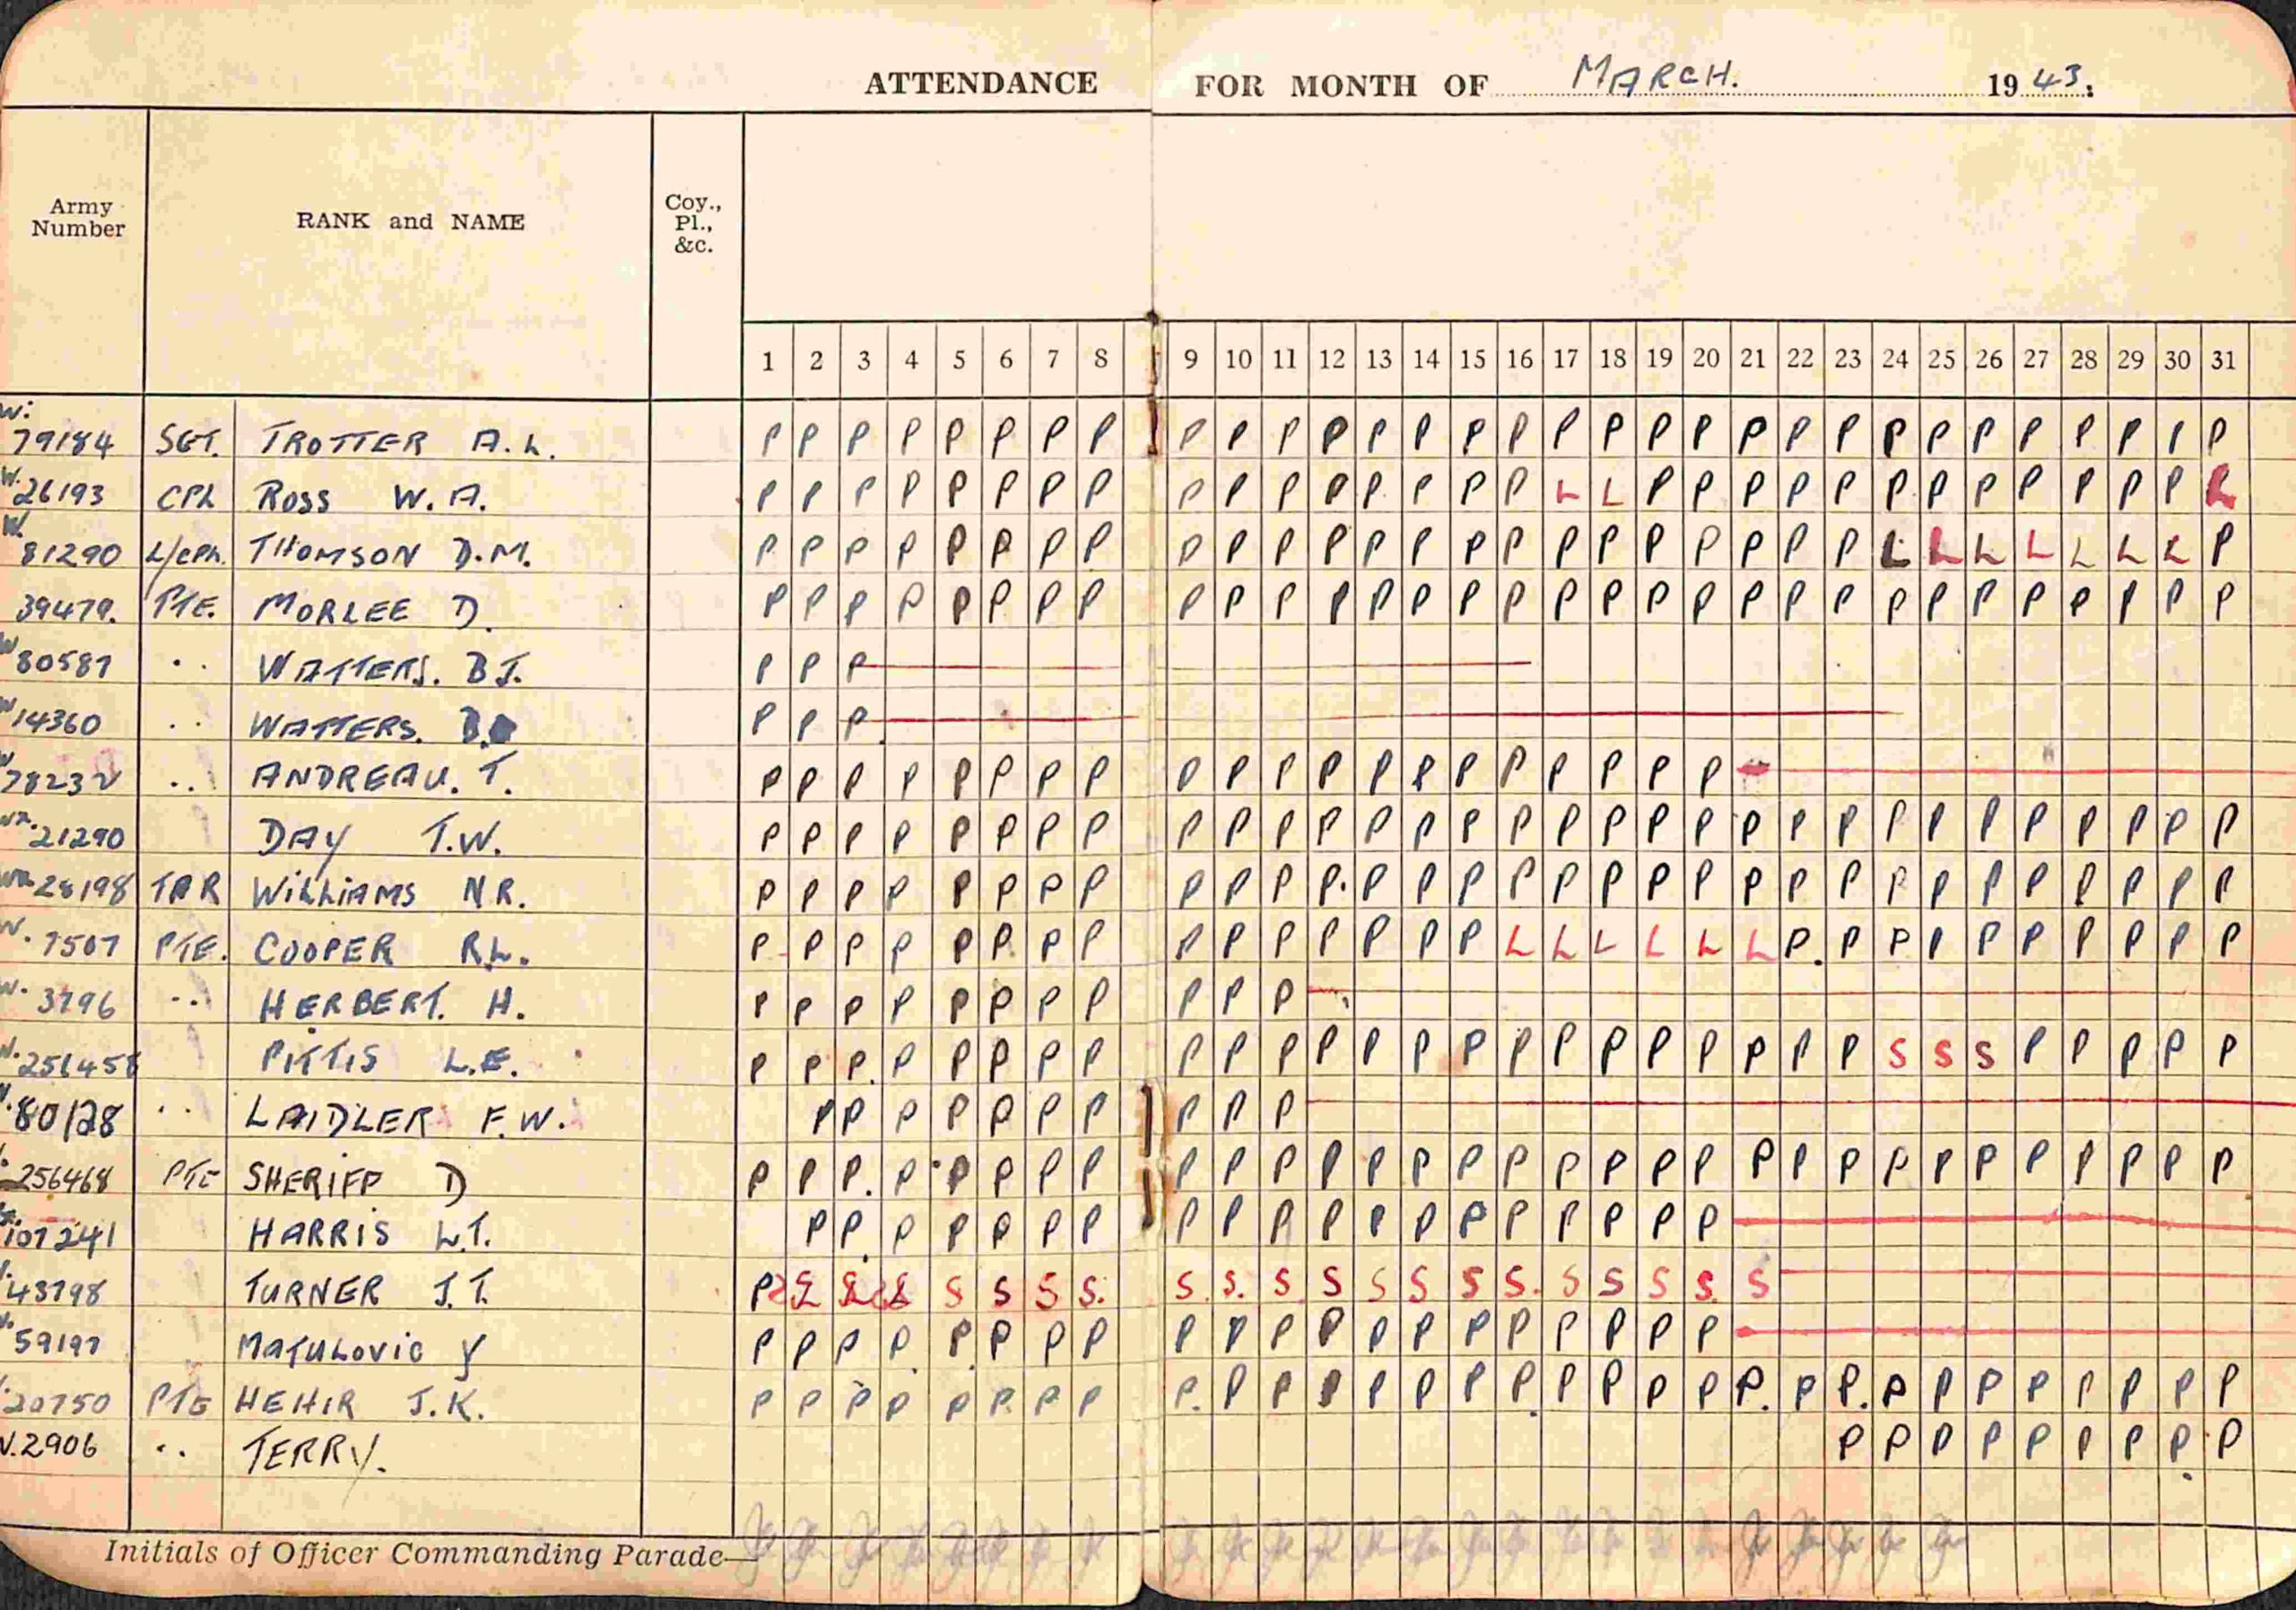 ATTENDANCE FOR MONTH OF MARCH. 1943.
Army Number RANK and NAME Coy., Pl., &c.
1 2 3 4 5 6 7 8 9 10 11 12 13 14 15 16 17 18 19 20 21 22 23 24 25 26 27 28 29 30 31
W. 79184 SGT. TROTTER A.L. P P P P P P P P P P P P P P P P P P P P P P P P P P P P P P P
W. 26193 CPL ROSS W.A. P P P P P P P P P P P P P P P P L L P P P P P P P P P P P P
W. 81290 L/CPL. THOMSON D.M. P P P P P P P P P P P P P P P P P P P P P P P L L L L L L L P
39479. PTE. MORLEE D. P P P P P P P P P P P P P P P P P P P P P P P P P P P P P P P
W 80587 .. WATTERS. B J. P P P
W 14360 .. WATTERS. P P P
W 78232 .. ANDREAU. T. P P P P P P P P P P P P P P P P P P P P
WX. 21290 DAY T.W. P P P P P P P P P P P P P P P P P P P P P P P P P P P P P P P
28198 TPR WILLIAMS N R. P P P P P P P P P P P P P P P P P P P P P P P P P P P P P P P
W. 7507 PTE. COOPER R.L. P P P P P P P P P P P P P P P L L L L L L P. P P P P P P P P P
W. 3796 .. HERBERT. H. P P P P P P P P P P P
W. 251458 PITTIS L.E. P P P. P P P P P P P P P P P P P P P P P P P P S S S P P P P P
80128 .. LAIDLER F.W. P P P P P P P P P P
256468 PTE SHERIFF D P P P. P P P P P P P P P P P P P P P P P P P P P P P P P P P P
107241 HARRIS L.T. P P P P P P P P P P P P P P P P P P P
43798 TURNER J.T. P S S S S. S. S. S S S S S S. S S S S. S
59197 MATULOVIC Y P P P P P P P P P P P P P P P P P P P P
20750 PTE HEHIR J.K. P P P P P P P P P. P P P P P P P P P P P P. P P. P P P P P P P P
W.2906 .. TERRY. P P P P P P P P P
Initials of Officer Commanding Parade—